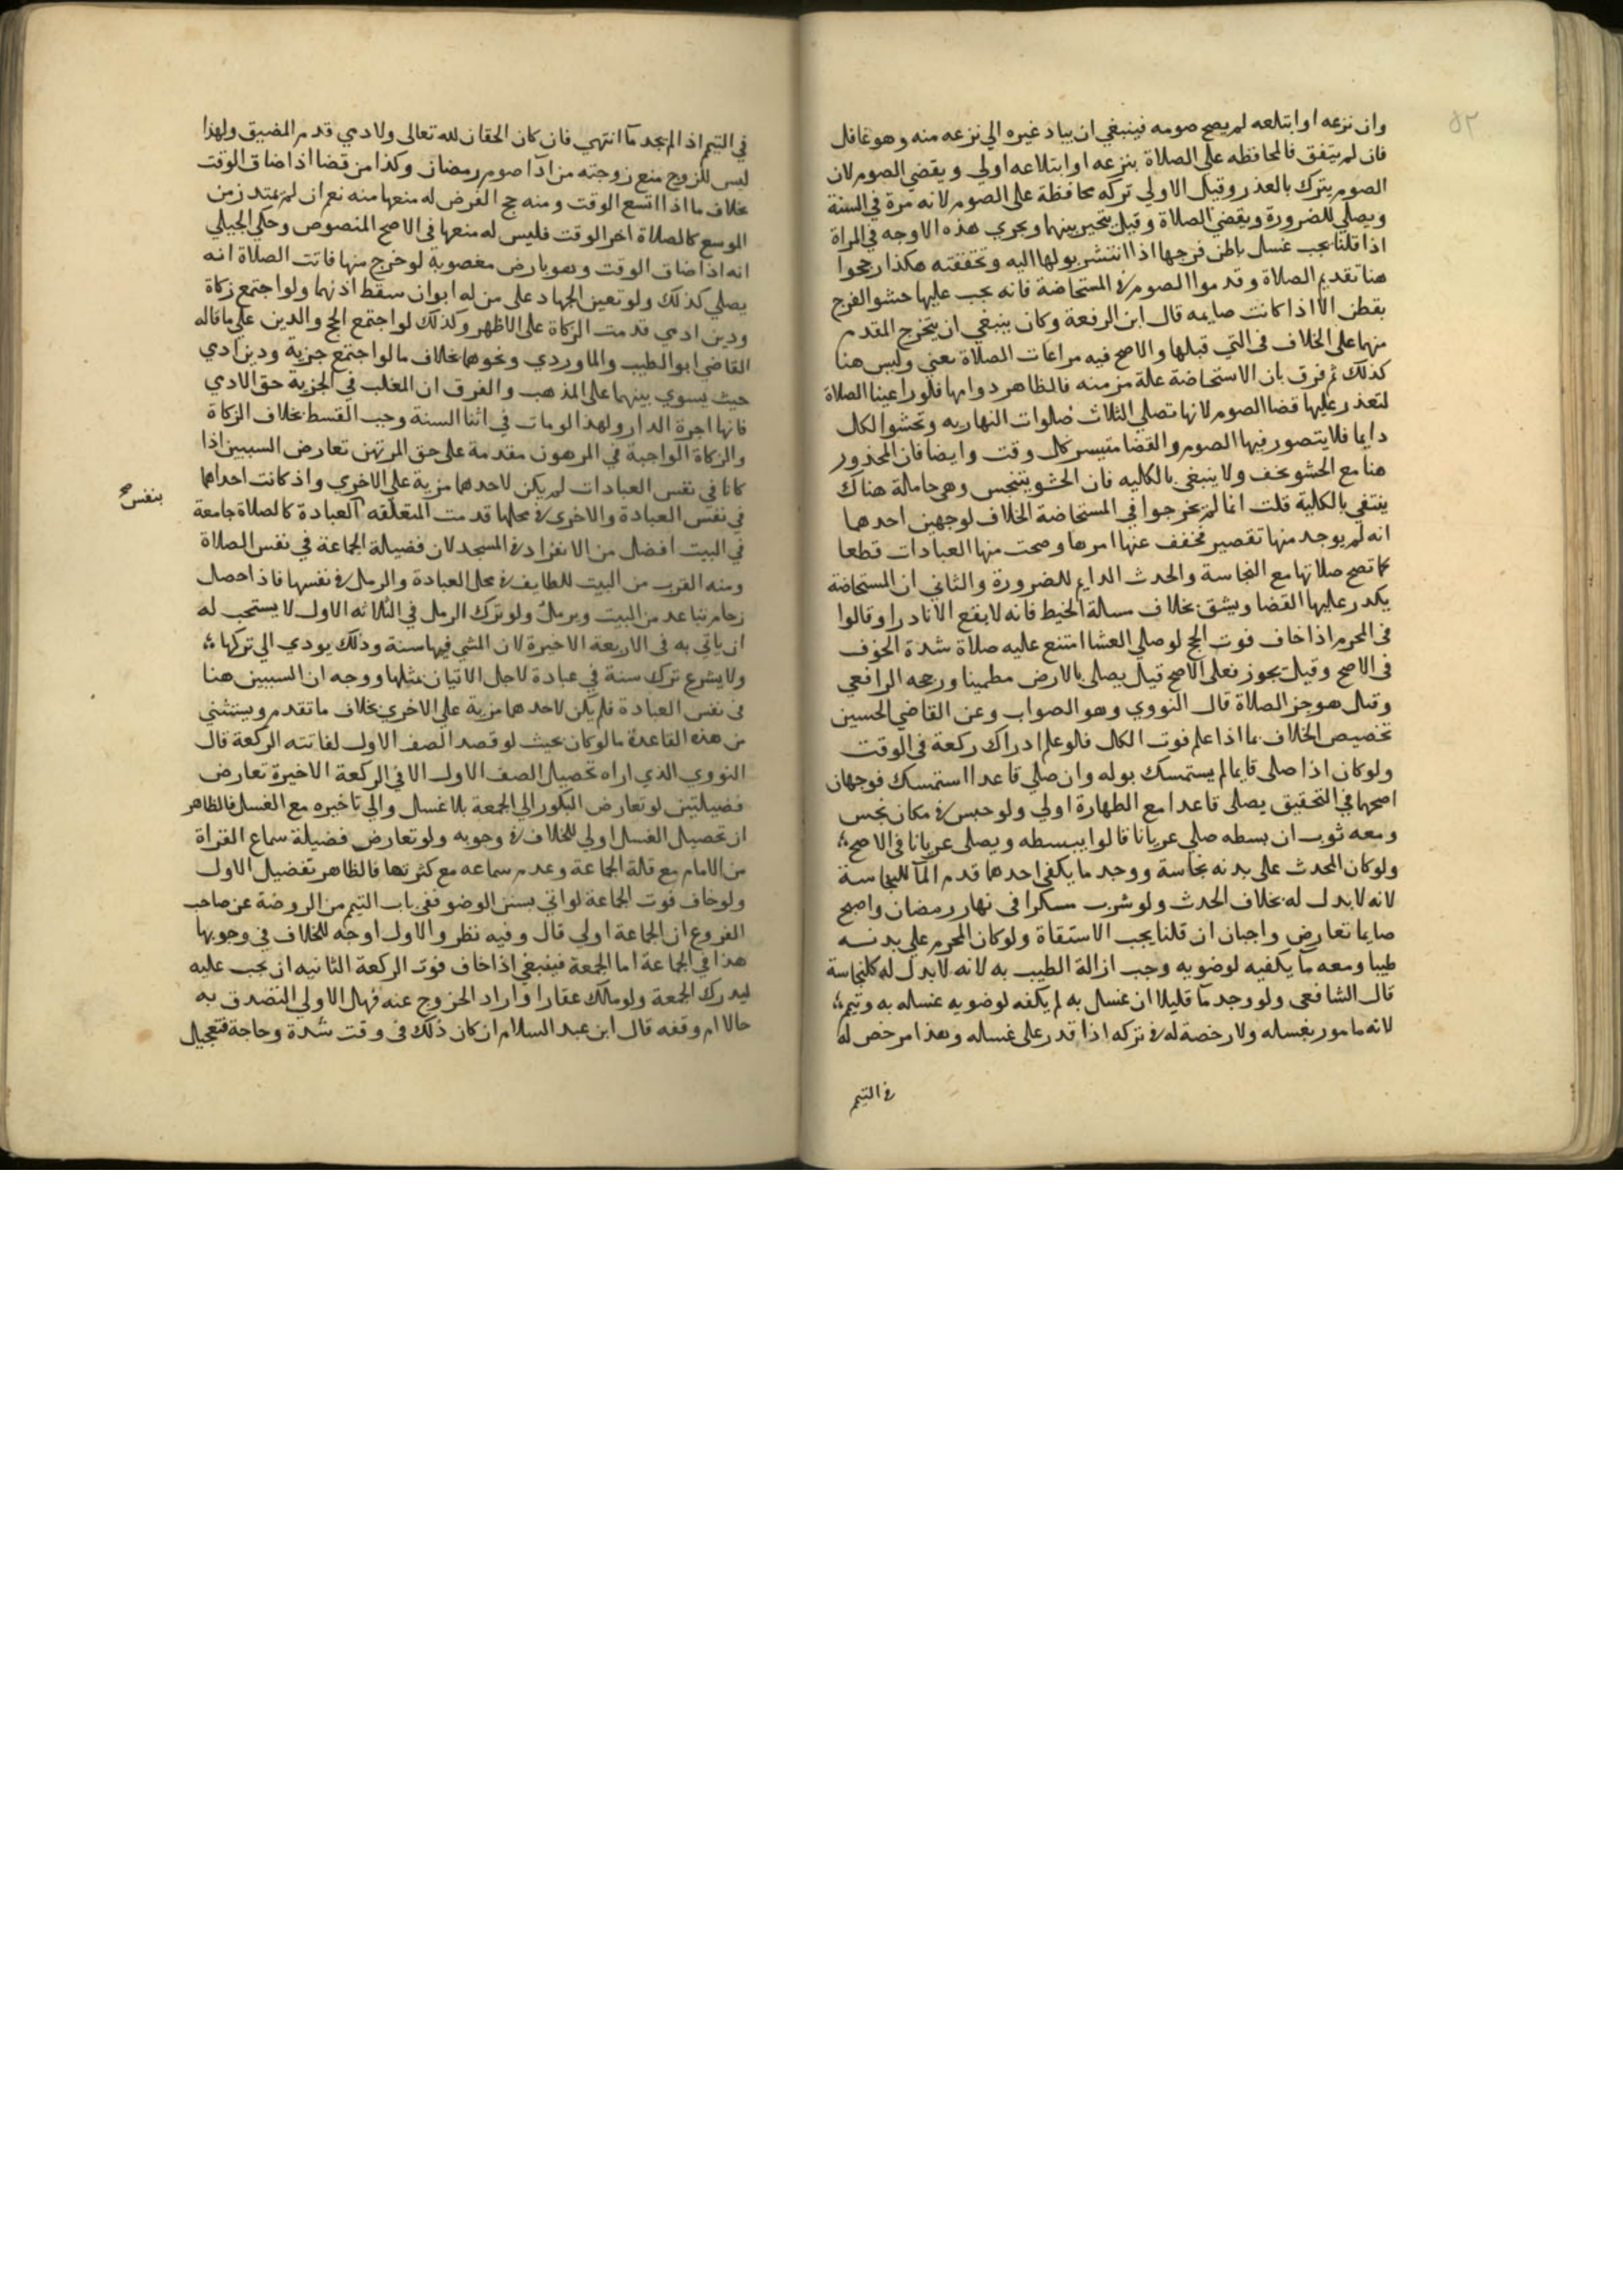 ٥٢
وان نزعه او ابتلعه لم يصح صومه فينبغي ان يبادر غيره الي نزعه منه وهو غافل
فان لم يتفق فالمحافظه على الصلاة بنزعه او ابتلاعه اولي ويقضي الصوم لان
الصوم يترك بالعذر وقيل الاولي تركه محافظة على الصوم لانه مرة في السنة
ويصلي للضرورة ويقضي الصلاة وقيل يتخير بينهما ويجري هذه الاوجه في المراة
اذا قلنا يجب غسل باطن فرجها اذا انتشر بولها اليه وتحققته هكذا رجحوا
هنا تقديم الصلاة وقدموا الصوم في المستحاضة فانه يجب عليها حشو الفرج
بقطن الا اذا كانت صايمه قال ابن الرفعة وكان ينبغي ان يتخرج المقدم
منهما على الخلاف في التي قبلها والاصح فيه مراعات الصلاة يعني وليس هنا
كذلك ثم فرق بان الاستحاضة علة مزمنه فالظاهر دوامها فلو راعينا الصلاة
لتعذر عليها قضا الصوم لانها تصلي الثلاث صلوات النهاريه وتحشو الكل
دايما فلا يتصور فيها الصوم والقضا متيسر كل وقت وايضا فان المحذور
هنا مع الحشو يخف ولا ينبغي بالكليه فان الحشو يتنجس وهي حاملة هناك
ينتفي بالكلية قلت انما لم يخرجوا في المستحاضة الخلاف لوجهين احدهما
انه لم يوجد منها تقصير فخفف عنها امرها وصحت منها العبادات قطعا
كما تصح صلاتها مع النجاسة والحدث الدايم للضرورة والثاني ان المستحاضة
يكدر عليها القضا ويشق بخلاف مسالة الخيط فانه لا يقع الا نادرا وقالوا
في المحرم اذا خاف فوت الحج لو صلي العشا امتنع عليه صلاة شدة الخوف
في الاصح وقيل يجوز فعلى الاصح قيل يصلي بالارض مطمينا ورجحه الرافعي
وقيل هو جز الصلاة قال النووي وهو الصواب وعن القاضي الحسين
تخصيص الخلاف بما اذا علم فوت الكل فلو علم ادراك ركعة في الوقت
ولو كان اذا صلى قايما لم يستمسك بوله وان صلي قاعدا استمسك فوجهان
اصحهما في التحقيق يصلي قاعدا مع الطهارة اولي ولو حبس في مكان نجس
ومعه ثوب ان بسطه صلي عريانا قالوا يبسطه ويصلي عريانا في الاصح
ولو كان المحدث على بدنه نجاسة ووجد ما يكفي احدهما قدم المآ للنجاسة
لانه لا بدل له بخلاف الحدث ولو شرب مسكرا في نهار رمضان واصبح
صايما تعارض واجبان ان قلنا يجب الاستقاة ولو كان المحرم على بدنه
طيبا ومعه ما يكفيه لوضويه وجب ازالة الطيب به لانه لا بدل له كالنجاسة
قال الشافعي ولو وجد مآ قليلا ان غسل به لم يكفه لوضويه غسله به وتيمم
لانه مامور بغسله ولا رخصة له في تركه اذا قدر على غسله وهذا مرخص له
في التيمم
في التيمم اذا لم يجد مآ انتهي فان كان الحقان لله تعالى ولادمي قدم المضيق ولهذا
ليس للزوج منع زوجته من ادآ صوم رمضان وكذا من قضا اذا ضاق الوقت
بخلاف ما اذا اتسع الوقت ومنه حج الفرض له منعها منه نعم ان لم يمتد زمن
الموسع كالصلاة اخر الوقت فليس له منعها في الاصح المنصوص وحكي الجيلي
انه اذا ضاق الوقت وهو بارض مغصوبة لو خرج منها فاتت الصلاة انه
يصلي كذلك ولو تعين الجهاد على من له ابوان سقط اذنهما ولو اجتمع زكاة
ودين ادمي قدمت الزكاة على الاظهر وكذلك لو اجتمع الحج والدين علي ما قاله
القاضي ابو الطيب والماوردي ونحوهما بخلاف ما لو اجتمع جزية ودين ادمي
حيث يسوي بينهما على المذهب والفرق ان المغلب في الجزية حق الادمي
فانها اجرة الدار ولهذا لو مات في اثنا السنة وجب القسط بخلاف الزكاة
والزكاة الواجبة في المرهون مقدمة على حق المرتهن تعارض السببين اذا
كانا في نفس العبادات لم يكن لاحدهما مزية على الاخري واذ كانت احداهما
في نفس العبادة والاخري في محلها قدمت المتعلقه العبادة كالصلاة جامعة
بنفس صح
في البيت افضل من الانفراد في المسجد لان فضيلة الجماعة في نفس الصلاة
ومنه القرب من البيت للطايف في محل العبادة والرمل في نفسها فاذا حصل
زحام تباعد من البيت ويرمل ولو ترك الرمل في الثلاثه الاول لا يستحب له
ان ياتي به في الاربعة الاخيرة لان المشي فيها سنة وذلك يودي الي تركها
ولا يشرع ترك سنة في عبادة لاجل الاتيان بمثلها ووجه ان السببين هنا
في نفس العبادة فلم يكن لاحدهما مزية على الاخري بخلاف ما تقدم ويستثني
من هذه القاعدة ما لو كان بحيث لو قصد الصف الاول لفاتته الركعة قال
النووي الذي اراه تحصيل الصف الاول الا في الركعة الاخيرة تعارض
فضيلتين لو تعارض البكور الي الجمعة بلا غسل والي تاخيره مع الغسل فالظاهر
ان تحصيل الغسل اولي للخلاف في وجوبه ولو تعارض فضيلة سماع القراة
من الامام مع قلة الجماعة وعدم سماعه مع كثرتها فالظاهر تفضيل الاول
ولو خاف فوت الجماعة لو اتي بسنن الوضو ففي باب التيمم من الروضة عن صاحب
الفروع ان الجماعة اولي قال وفيه نظر والاول اوجه للخلاف في وجوبها
هذا في الجماعة اما الجمعة فينبغي اذا خاف فوت الركعة الثانيه ان يجب عليه
ليدرك الجمعة ولو مالك عقارا واراد الخروج عنه فهل الاولي التصدق به
حالا ام وقفه قال ابن عبد السلام ان كان ذلك في وقت شدة وحاجة فتعجيل